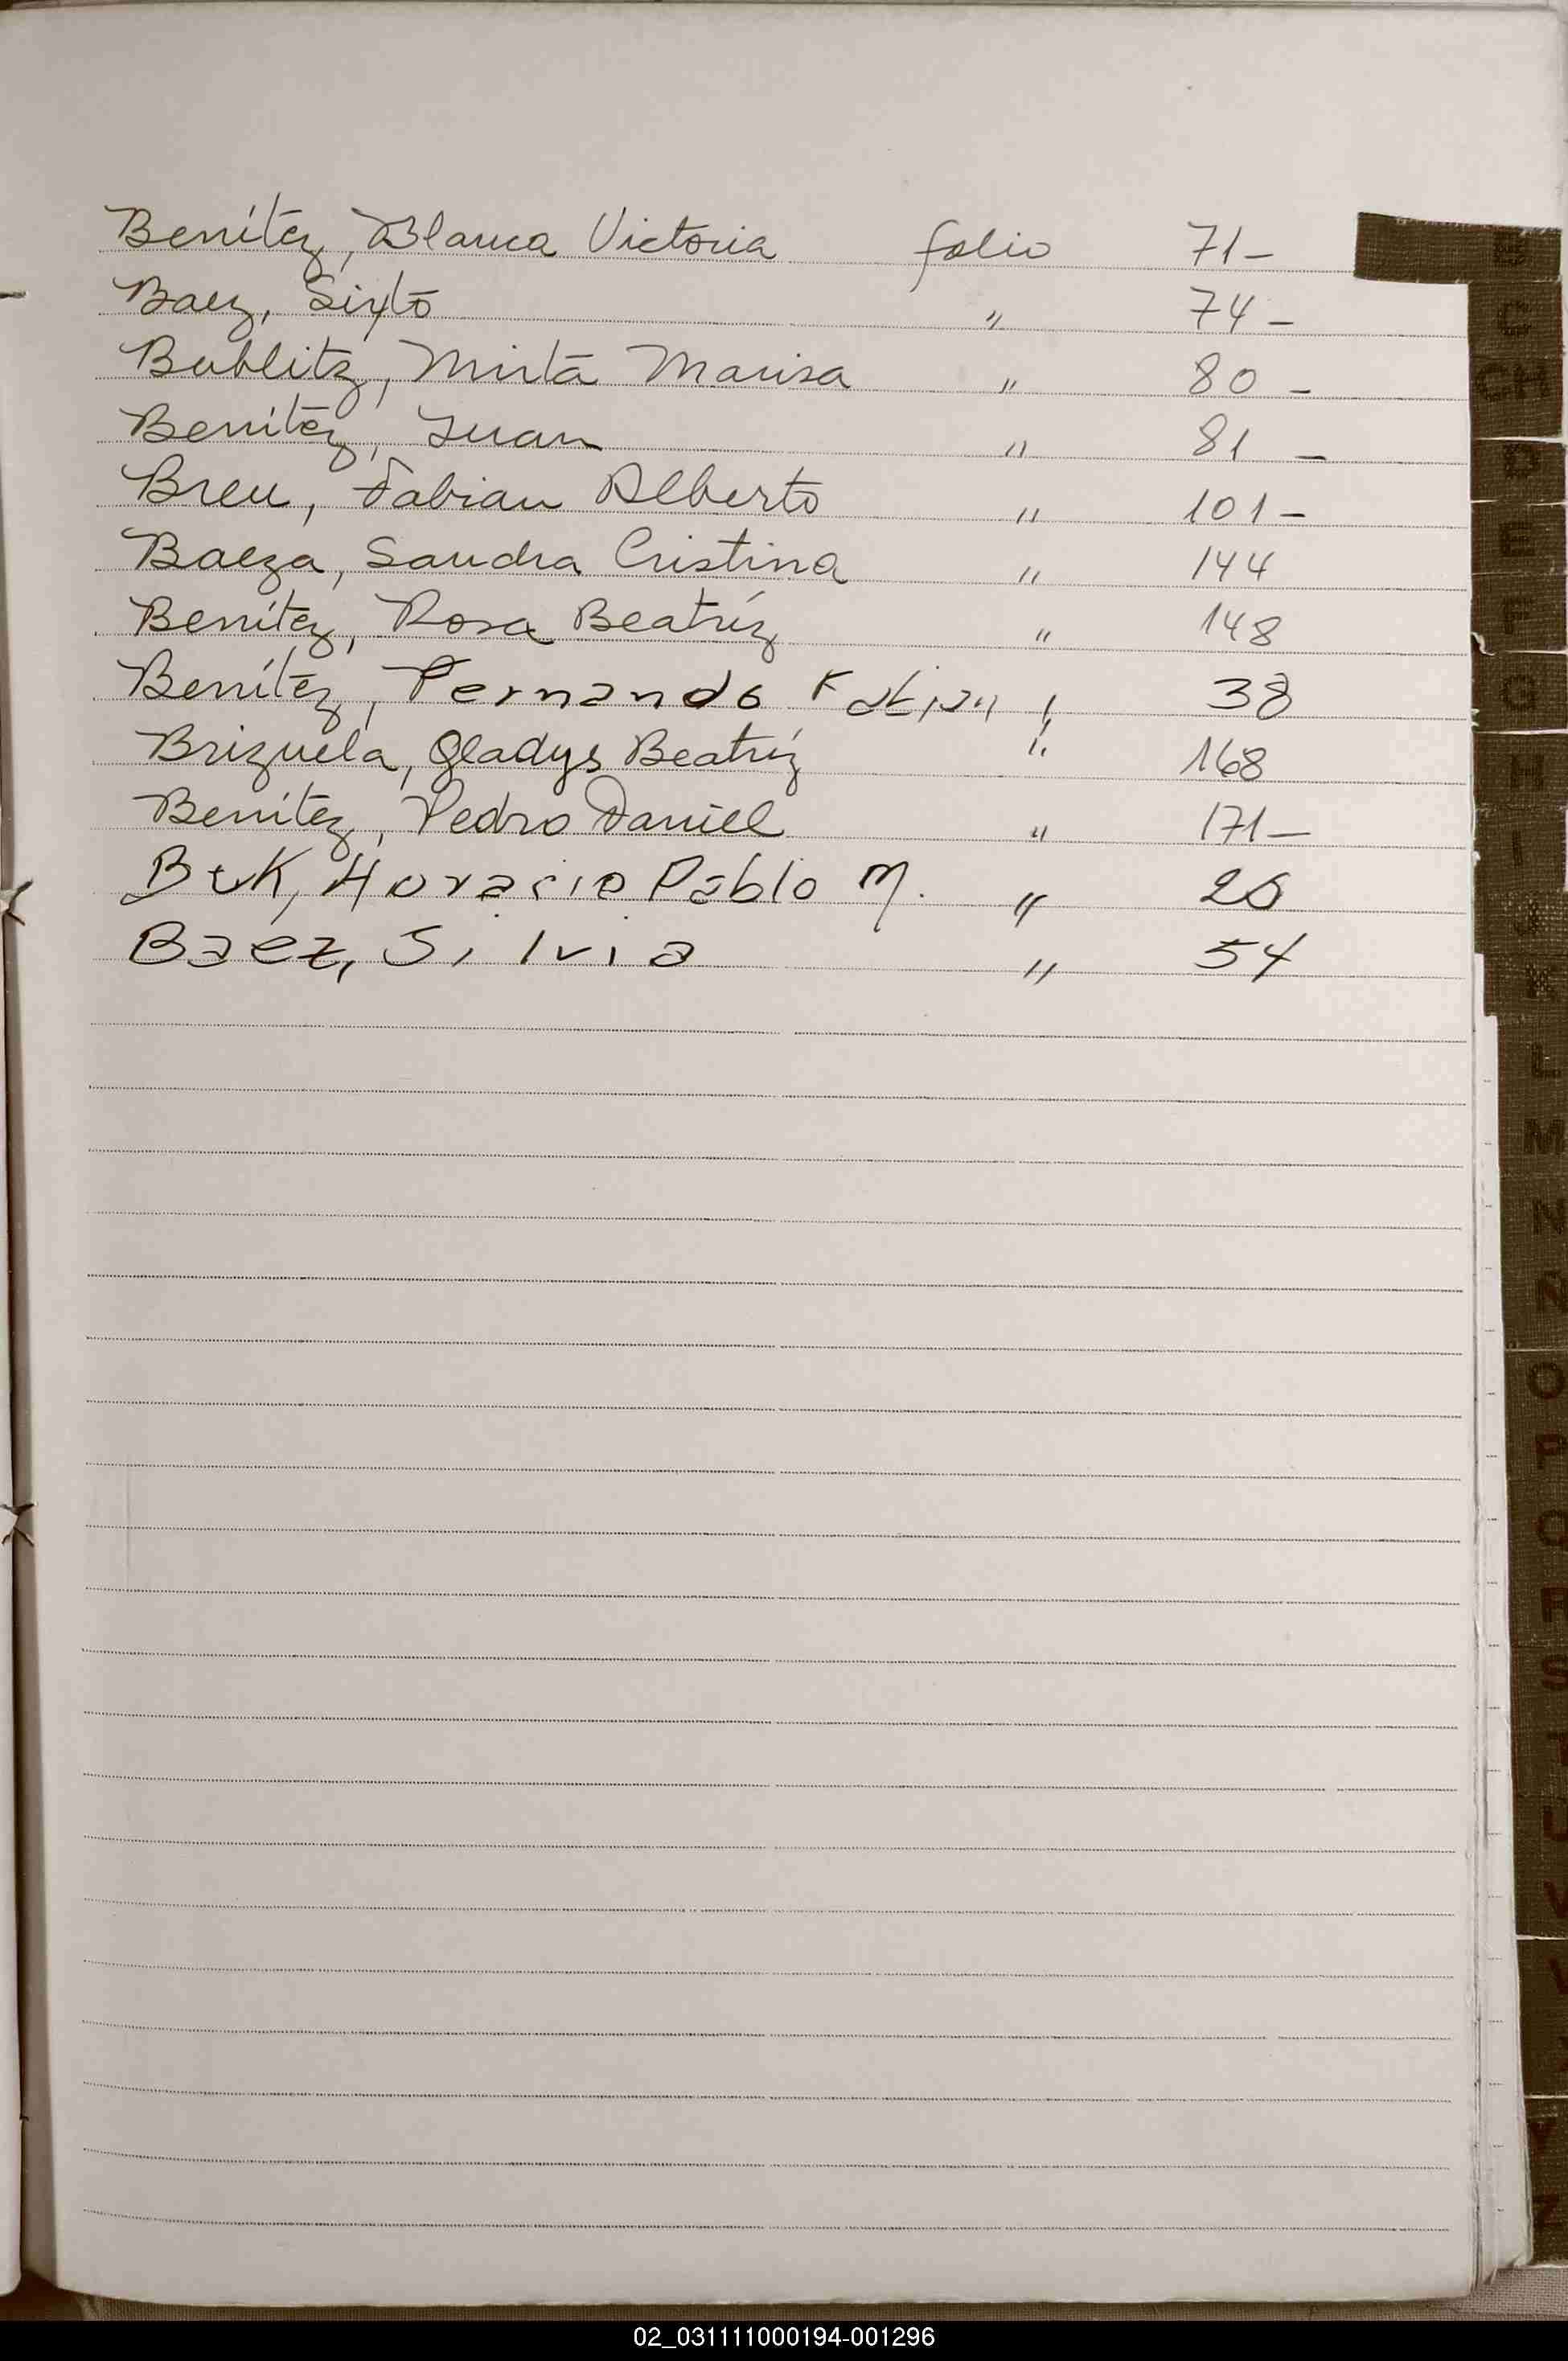 Benítez, Blanca Victoria folio 71 -
Baez, Sixto " 74 -
Bublitz, Mirta Marisa " 80 -
Benitez, Juan " 81 -
Breu, Fabian Alberto " 101 -
Baeza, Sandra Cristina " 144
Benítez, Rosa Beatríz " 148
Benítez, Fernando " 38
Brizuela, Gladys Beatríz " 168
Benitez, Pedro Daniel " 171 -
Buk, Horacio Pablo M. " 26
Baez, Silvia " 54
B
C
CH
D
E
F
G
H
I
J
K
L
M
N
Ñ
O
P
Q
R
S
T
U
V
Y
Z
02_031111000194-001296